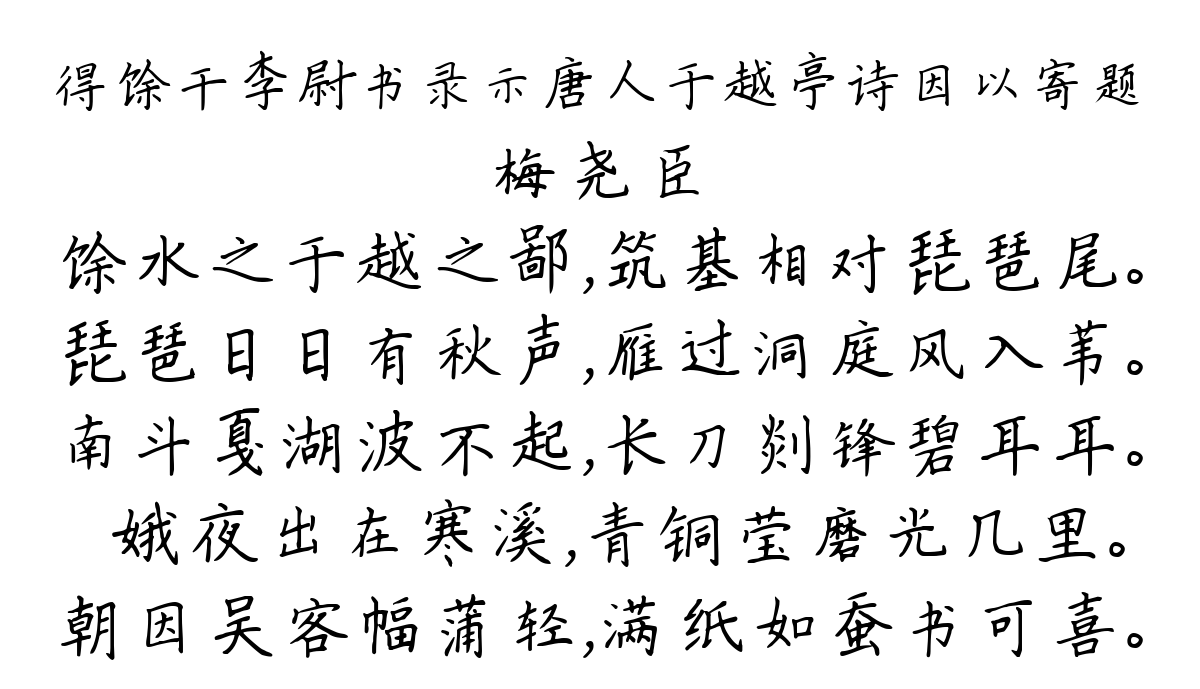 得馀干李尉书录示唐人于越亭诗因以寄题
梅尧臣
馀水之于越之鄙,筑基相对琵琶尾。
琵琶日日有秋声,雁过洞庭风入苇。
南斗戛湖波不起,长刀剡锋碧耳耳。
娥夜出在寒溪,青铜莹磨光几里。
朝因吴客幅蒲轻,满纸如蚕书可喜。